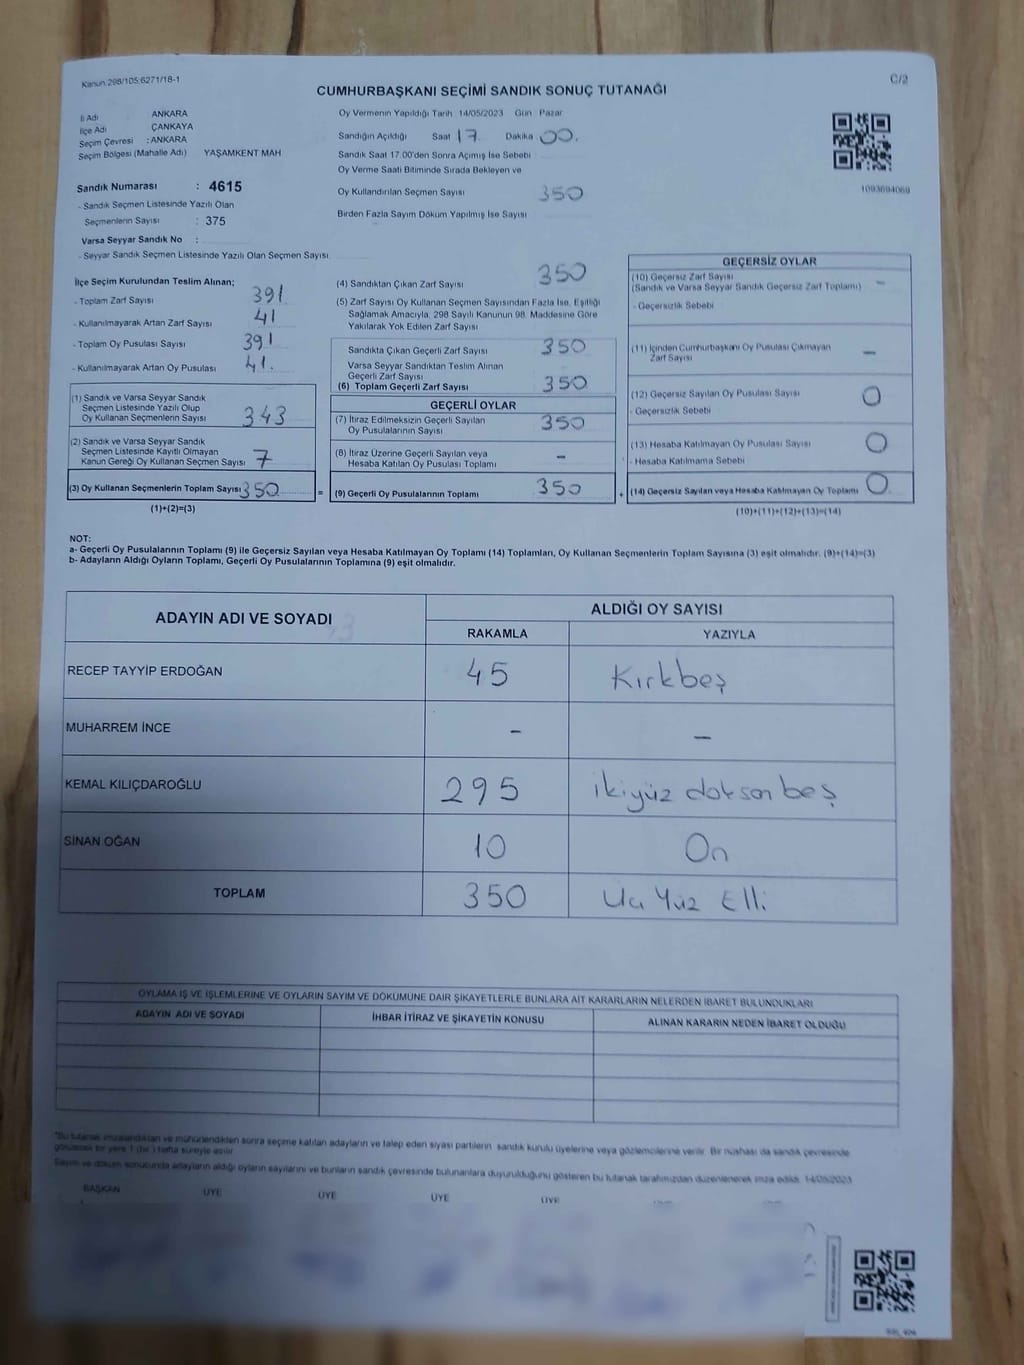 Kanun:298/105:6271/18-1
C/2
CUMHURBAŞKANI SEÇİMİ SANDIK SONUÇ TUTANAĞI
İl Adı ANKARA
İlçe Adı ÇANKAYA
Seçim Çevresi : ANKARA
Seçim Bölgesi (Mahalle Adı) YAŞAMKENT MAH
Sandık Numarası : 4615
- Sandık Seçmen Listesinde Yazılı Olan
Seçmenlerin Sayısı : 375
Varsa Seyyar Sandık No :
- Seyyar Sandık Seçmen Listesinde Yazılı Olan Seçmen Sayısı
Oy Vermenin Yapıldığı Tarih 14/05/2023 Gün Pazar
Sandığın Açıldığı Saat 17 Dakika 00.
Sandık Saat 17.00'den Sonra Açımış İse Sebebi
Oy Verme Saati Bitiminde Sırada Bekleyen ve
Oy Kullandırılan Seçmen Sayısı 350
Birden Fazla Sayım Döküm Yapılmış İse Sayısı
1093694069
İlçe Seçim Kurulundan Teslim Alınan;
- Toplam Zarf Sayısı 391
- Kullanılmayarak Artan Zarf Sayısı 41
- Toplam Oy Pusulası Sayısı 391
- Kullanılmayarak Artan Oy Pusulası 41.
(1) Sandık ve Varsa Seyyar Sandık
Seçmen Listesinde Yazılı Olup
Oy Kullanan Seçmenlerin Sayısı 343
(2) Sandık ve Varsa Seyyar Sandık
Seçmen Listesinde Kayıtlı Olmayan
Kanun Gereği Oy Kullanan Seçmen Sayısı 7
(3) Oy Kullanan Seçmenlerin Toplam Sayısı 350 =
(1)+(2)=(3)
(4) Sandıktan Çıkan Zarf Sayısı 350
(5) Zarf Sayısı Oy Kullanan Seçmen Sayısından Fazla İse, Eşitliği
Sağlamak Amacıyla, 298 Sayılı Kanunun 98. Maddesine Göre
Yakılarak Yok Edilen Zarf Sayısı
Sandıkta Çıkan Geçerli Zarf Sayısı 350
Varsa Seyyar Sandıktan Teslim Alınan
Geçerli Zarf Sayısı -
(6) Toplam Geçerli Zarf Sayısı 350
GEÇERLİ OYLAR
(7) İtiraz Edilmeksizin Geçerli Sayılan
Oy Pusulalarının Sayısı 350
(8) İtiraz Üzerine Geçerli Sayılan veya
Hesaba Katılan Oy Pusulası Toplamı -
(9) Geçerli Oy Pusulalarının Toplamı 350 +
GEÇERSİZ OYLAR
(10) Geçersiz Zarf Sayısı
(Sandık ve Varsa Seyyar Sandık Geçersiz Zarf Toplamı) -
- Geçersizlik Sebebi
(11) İçinden Cumhurbaşkanı Oy Pusulası Çıkmayan
Zarf Sayısı -
(12) Geçersiz Sayılan Oy Pusulası Sayısı 0
- Geçersizlik Sebebi
(13) Hesaba Katılmayan Oy Pusulası Sayısı 0
- Hesaba Katılmama Sebebi
(14) Geçersiz Sayılan veya Hesaba Katılmayan Oy Toplamı 0
(10)+(11)+(12)+(13)=(14)
NOT:
a- Geçerli Oy Pusulalarının Toplamı (9) ile Geçersiz Sayılan veya Hesaba Katılmayan Oy Toplamı (14) Toplamları, Oy Kullanan Seçmenlerin Toplam Sayısına (3) eşit olmalıdır. (9)+(14)=(3)
b- Adayların Aldığı Oyların Toplamı, Geçerli Oy Pusulalarının Toplamına (9) eşit olmalıdır.
ADAYIN ADI VE SOYADI ALDIĞI OY SAYISI
RAKAMLA YAZIYLA
RECEP TAYYİP ERDOĞAN 45 Kırkbeş
MUHARREM İNCE - -
KEMAL KILIÇDAROĞLU 295 ikiyüz doksan beş
SİNAN OĞAN 10 On
TOPLAM 350 Üç Yüz Elli
OYLAMA İŞ VE İŞLEMLERİNE VE OYLARIN SAYIM VE DÖKÜMÜNE DAİR ŞİKAYETLERLE BUNLARA AİT KARARLARIN NELERDEN İBARET BULUNDUKLARI
ADAYIN ADI VE SOYADI İHBAR İTİRAZ VE ŞİKAYETİN KONUSU ALINAN KARARIN NEDEN İBARET OLDUĞU
*Bu tutanak imzalandıktan ve mühürlendikten sonra seçime katılan adayların ve talep eden siyasi partilerin sandık kurulu üyelerine veya gözlemcilerine verilir. Bir nüshası da sandık çevresinde
görülecek bir yere 1 (bir) hafta süreyle asılır.
Sayım ve döküm sonucunda adayların aldığı oyların sayılarını ve bunların sandık çevresinde bulunanlara duyurulduğunu gösteren bu tutanak tarafımızdan düzenlenerek imza edildi. 14/05/2023
BAŞKAN ÜYE ÜYE ÜYE ÜYE